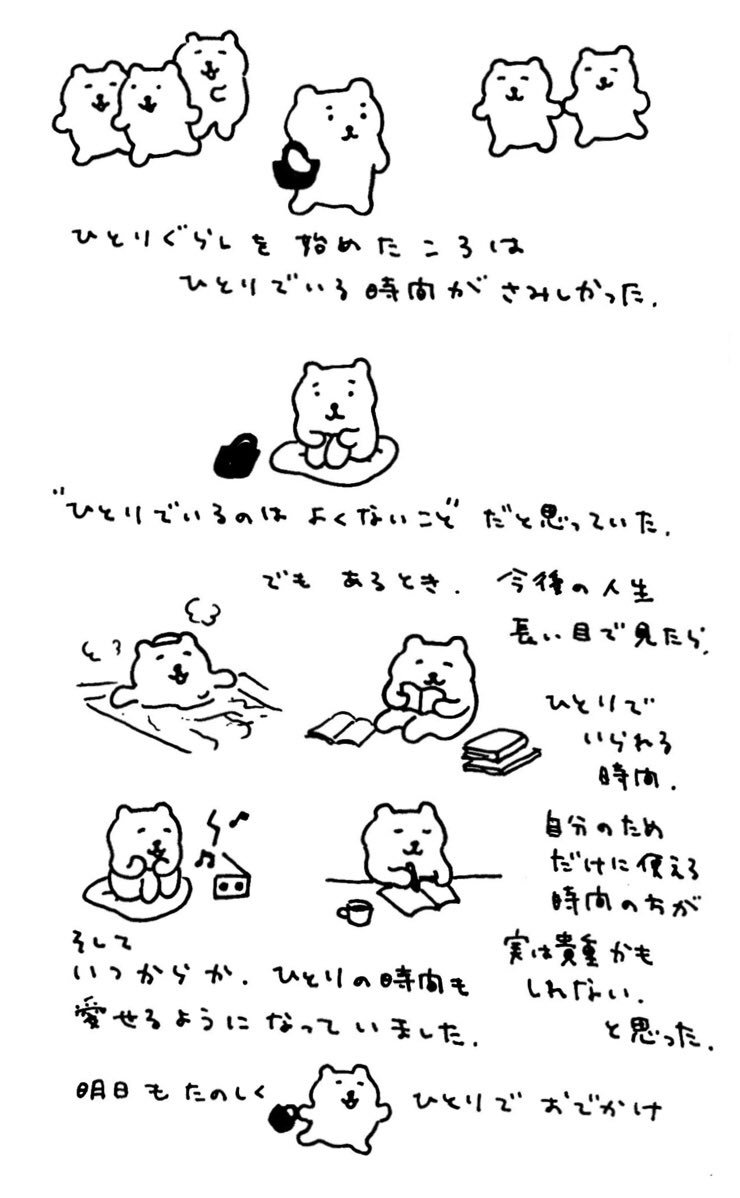 ひとりぐらしを始めたころは
ひとりでいる時間がさみしかった.
"ひとりでいるのはよくないこと"だと思っていた.
でも あるとき. 今後の人生
長い目で見たら,
ひとりで
いられる
時間.
自分のため
だけに使える
時間の方が
実は貴重かも
しれない.
と思った.
そして
いつからか. ひとりの時間も
愛せるようになっていました.
明日もたのしく ひとりで おでかけ